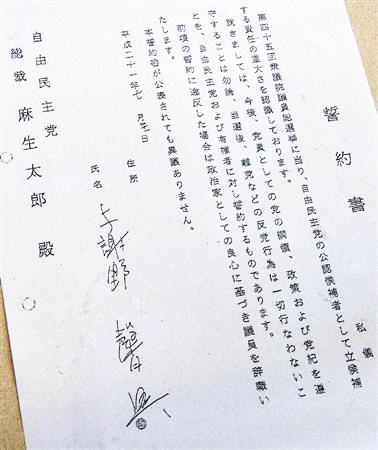 誓約書
私儀
第四十五回衆議院議員総選挙に当り、自由民主党の公認候補者として立候補
する責任の重大さを認識しております。
就きましては、今後、党員としての党の綱領、政策および党紀を遵
守することは勿論、当選後、離党などの反党行為は一切行なわないこ
とを、自由民主党および有権者に対し誓約するものであります。
前項の誓約に違反した場合は政治家としての良心に基づき議員を辞職い
たします。
本誓約書が公表されても異議ありません。
平成二十一年七月 日
住所
氏名 与謝野 馨
自由民主党
総裁 麻生太郎 殿